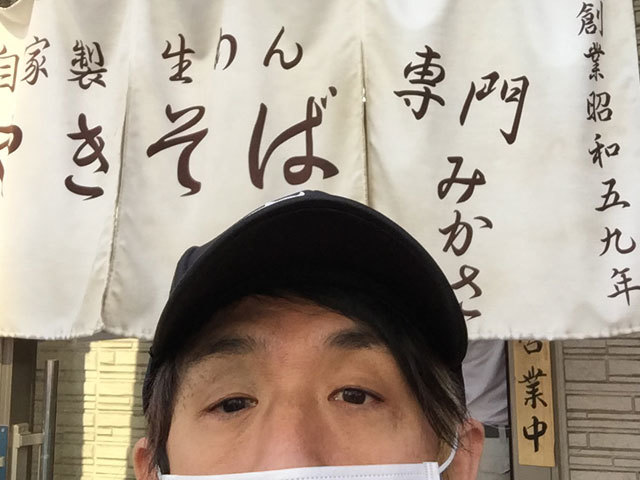 自家製 生めん
やきそば
専門
みかさ
創業昭和五九年
営業中